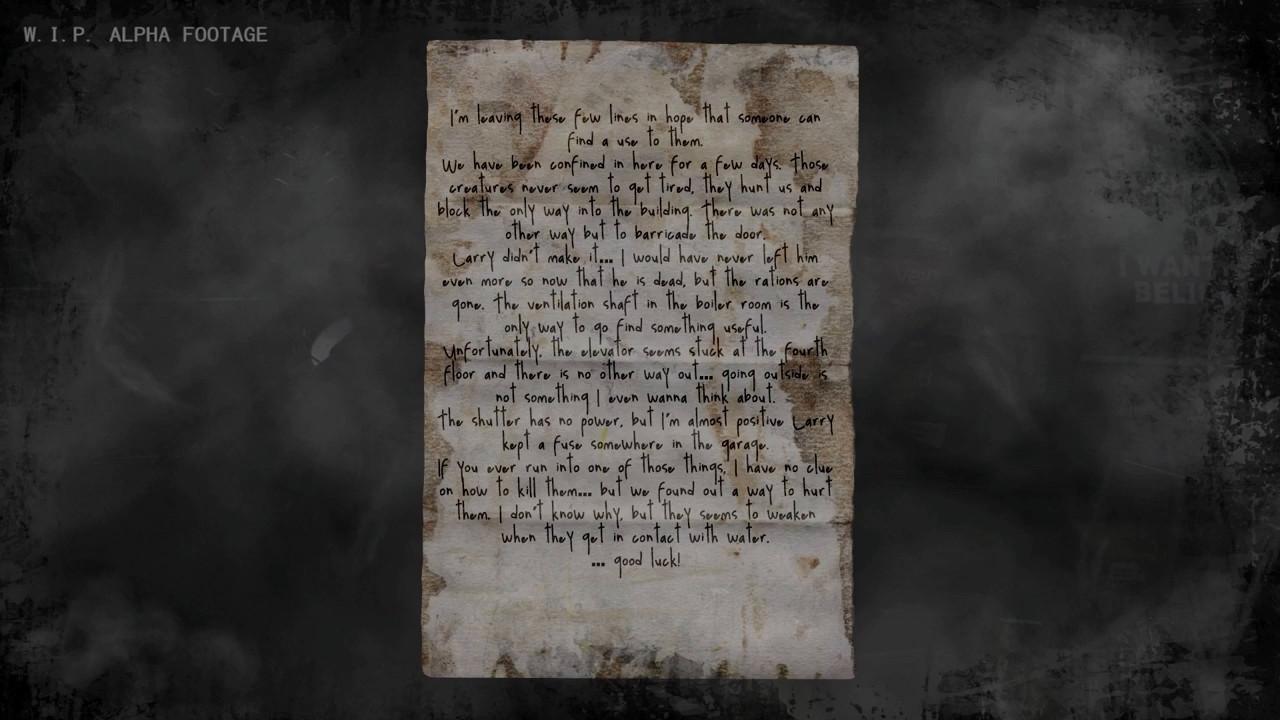 W.I.P. ALPHA FOOTAGE
I'm leaving these few lines in hope that someone can
find a use to them.
We have been confined in here for a few days. Those
creatures never seem to get tired, they hunt us and
block the only way into the building. There was not any
other way but to barricade the door.
Larry didn't make it... I would have never left him
even more so now that he is dead, but the rations are
gone. The ventilation shaft in the boiler room is the
only way to go find something useful.
Unfortunately, the elevator seems stuck at the fourth
floor and there is no other way out... going outside is
not something I even wanna think about.
The shutter has no power, but I'm almost positive Larry
kept a fuse somewhere in the garage.
If you ever run into one of those things, I have no clue
on how to kill them... but we found out a way to hurt
them. I don't know why, but they seems to weaken
when they get in contact with water.
... good luck!
I WANT
BELI